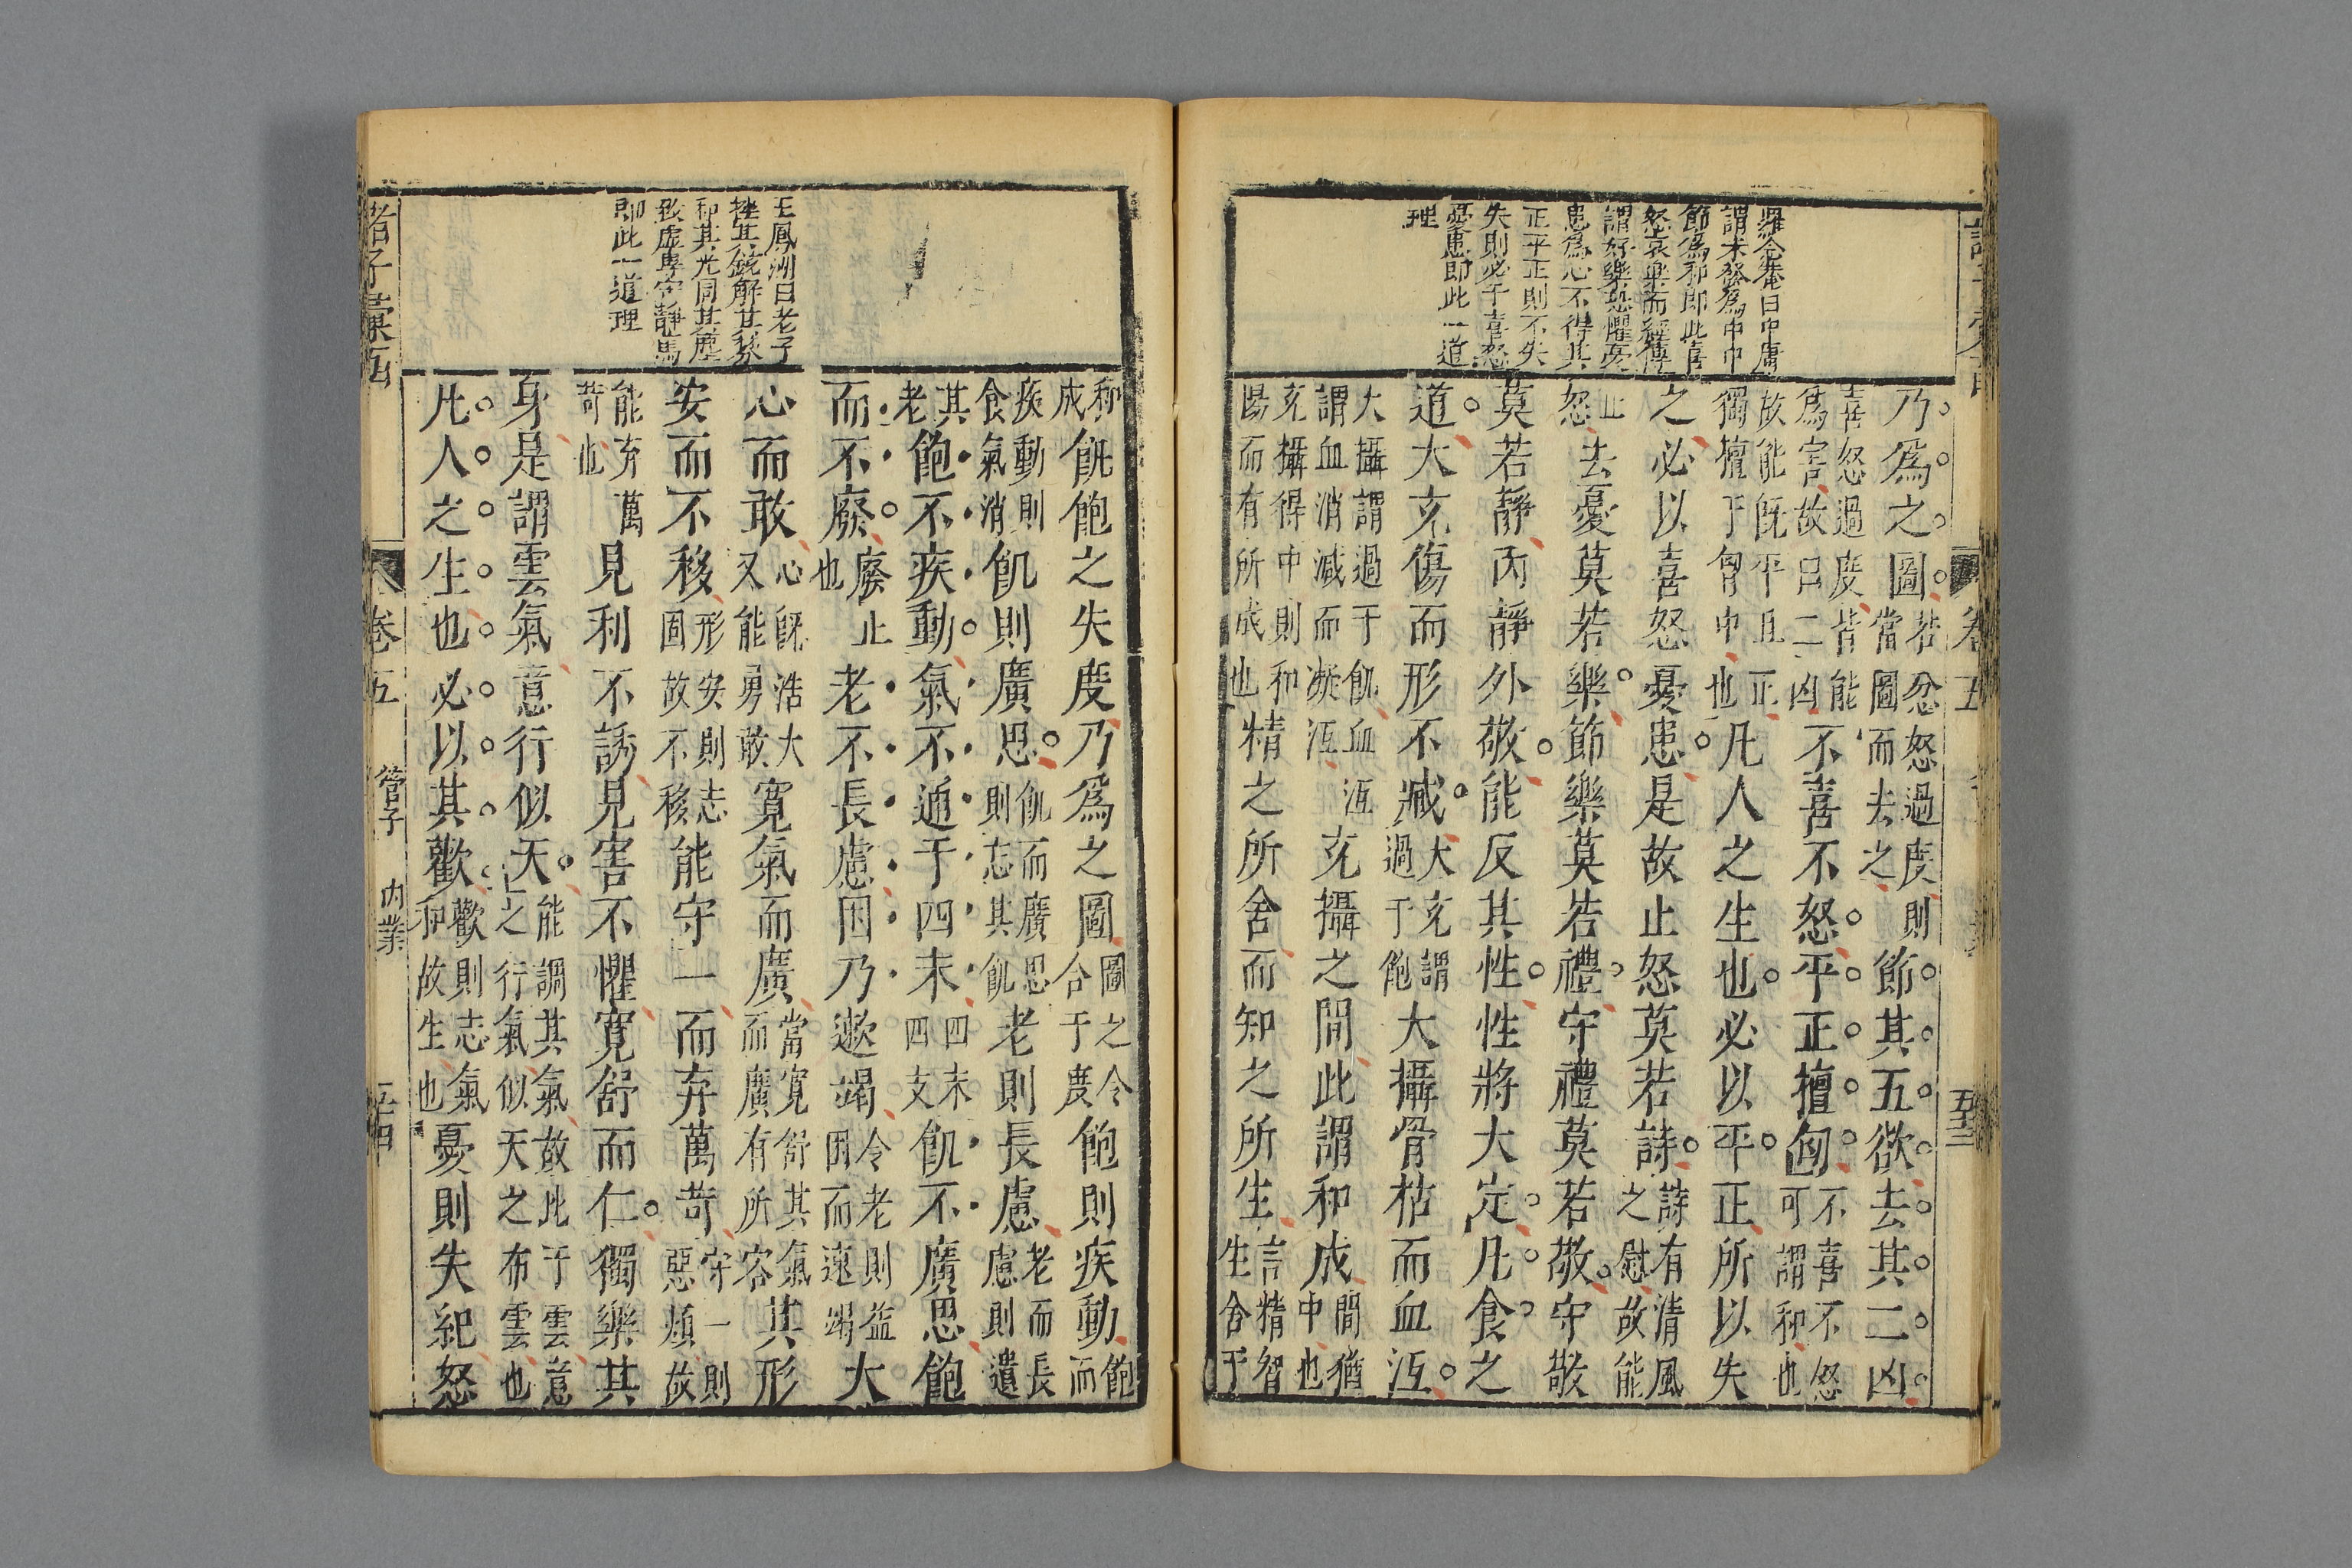 羅念菴曰中庸
謂未發爲中中
節爲和即此喜
怒哀樂而經傳
謂好樂恐懼憂
患爲心不得其
正平正則不失
失則必于喜怒
憂患即此一道
理
卷五
五十三
乃爲之圖若忿怒過度則當圖而去之節其五欲去其二凶
喜怒過度皆能爲害故曰二凶不喜不怒平正擅匈不喜不怒可謂和也
故能旣平且正獨擅于匈中也凡人之生也必以平正所以失
之必以喜怒憂患是故止怒莫若詩詩有清風之慰故能
止怒去憂莫若樂節樂莫若禮守禮莫若敬守敬
莫若靜內靜外敬能反其性性將大定凡食之
道大充傷而形不臧大充謂過于飽大攝骨枯而血沍
大攝謂過于飢血沍謂血消減而凝沍充攝之間此謂和成間猶中也
充攝得中則和陽而有所成也精之所舍而知之所生言精智生舍于
王鳳洲曰老子
挫其銳解其紛
和其光同其塵
致虛專守靜篤
即此一道理
和成飢飽之失度乃爲之圖圖之令合于度飽則疾動飽而
疾動則食氣消飢則廣思飢而廣思則忘其飢老則長慮老而長慮則遺
其老飽不疾動氣不通于四末四末四支飢不廣思飽
而不廢廢止也老不長慮困乃遬竭令老則益困而速竭大
心而敢心旣浩大又能勇敢寬氣而廣當寬舒其氣而廣有所容其形
安而不移形安則志固故不移能守一而弃萬苛守一則惡煩故
能弃萬苛也見利不誘見害不懼寬舒而仁獨樂其
身是謂雲氣意行似天能調其氣故比于雲意之行氣似天之布雲也
凡人之生也必以其歡歡則志氣和故生也憂則失紀怒
諸子彙函
卷五
管子
內業
五十四